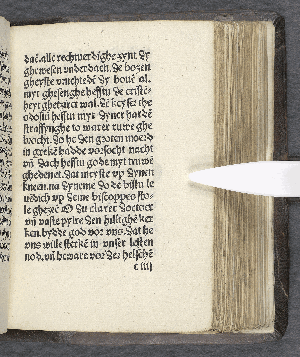 daē. alle rechtuerdighe synt dy
ghewesen vnderdaen. de bozen
gheyste vruchtedē dy bouē al.
myt ghesenghe hefstu de cristē-
heyt ghetziret wal. de keyser the
odosiū hefstu myt dyner hardē
straffynghe to warer ruwe ghe
brocht. do he den groten moerd
in grekē hadde vorsocht nacht
vn̄ dach hefstu gode myt truwē
ghedenet. dat wyste vp dynen
kneen. na dyneme dode bistu le
uēdich vp deme biscoppes sto-
le ghezeē O du clarer doctoer
vn̄ vaste pyler der hillighē ker
ken. bydde god vor vns. dat he
vns wille sterkē in vnser lesten
nod. vn̄ beware vor der helschē
c iiij